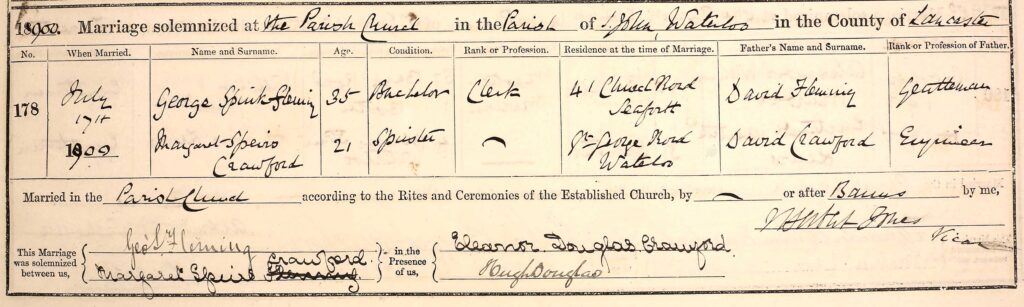 1900. Marriage solemnized at the Parish Church in the Parish of S. John, Waterloo in the County of Lancaster
No. When Married. Name and Surname. Age. Condition. Rank or Profession. Residence at the time of Marriage. Father's Name and Surname. Rank or Profession of Father.
178 July 17th 1900 George Spink Fleming 35 Bachelor Clerk 41 Church Road Seaforth David Fleming Gentleman
Margaret Speirs Crawford 21 Spinster George Road Waterloo David Crawford Engineer
Married in the Parish Church according to the Rites and Ceremonies of the Established Church, by or after Banns by me,
Jones
Vicar
This Marriage was solemnized between us,
Geo S Fleming
Margaret Speirs Crawford Fleming
in the Presence of us,
Eleanor Douglas Crawford
Hugh Douglas